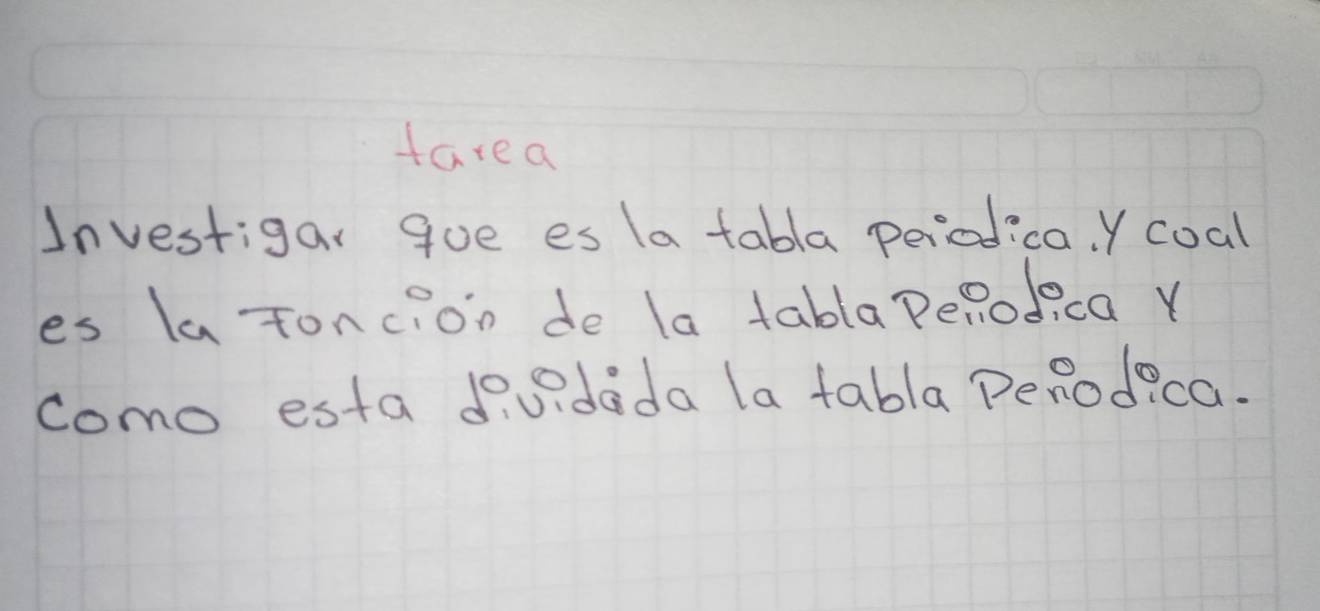 tarea
Investigar que es la tabla periodica. Y coal
es la Foncion de la tabla Periodica Y
Como esta dividida la tabla Periodica.